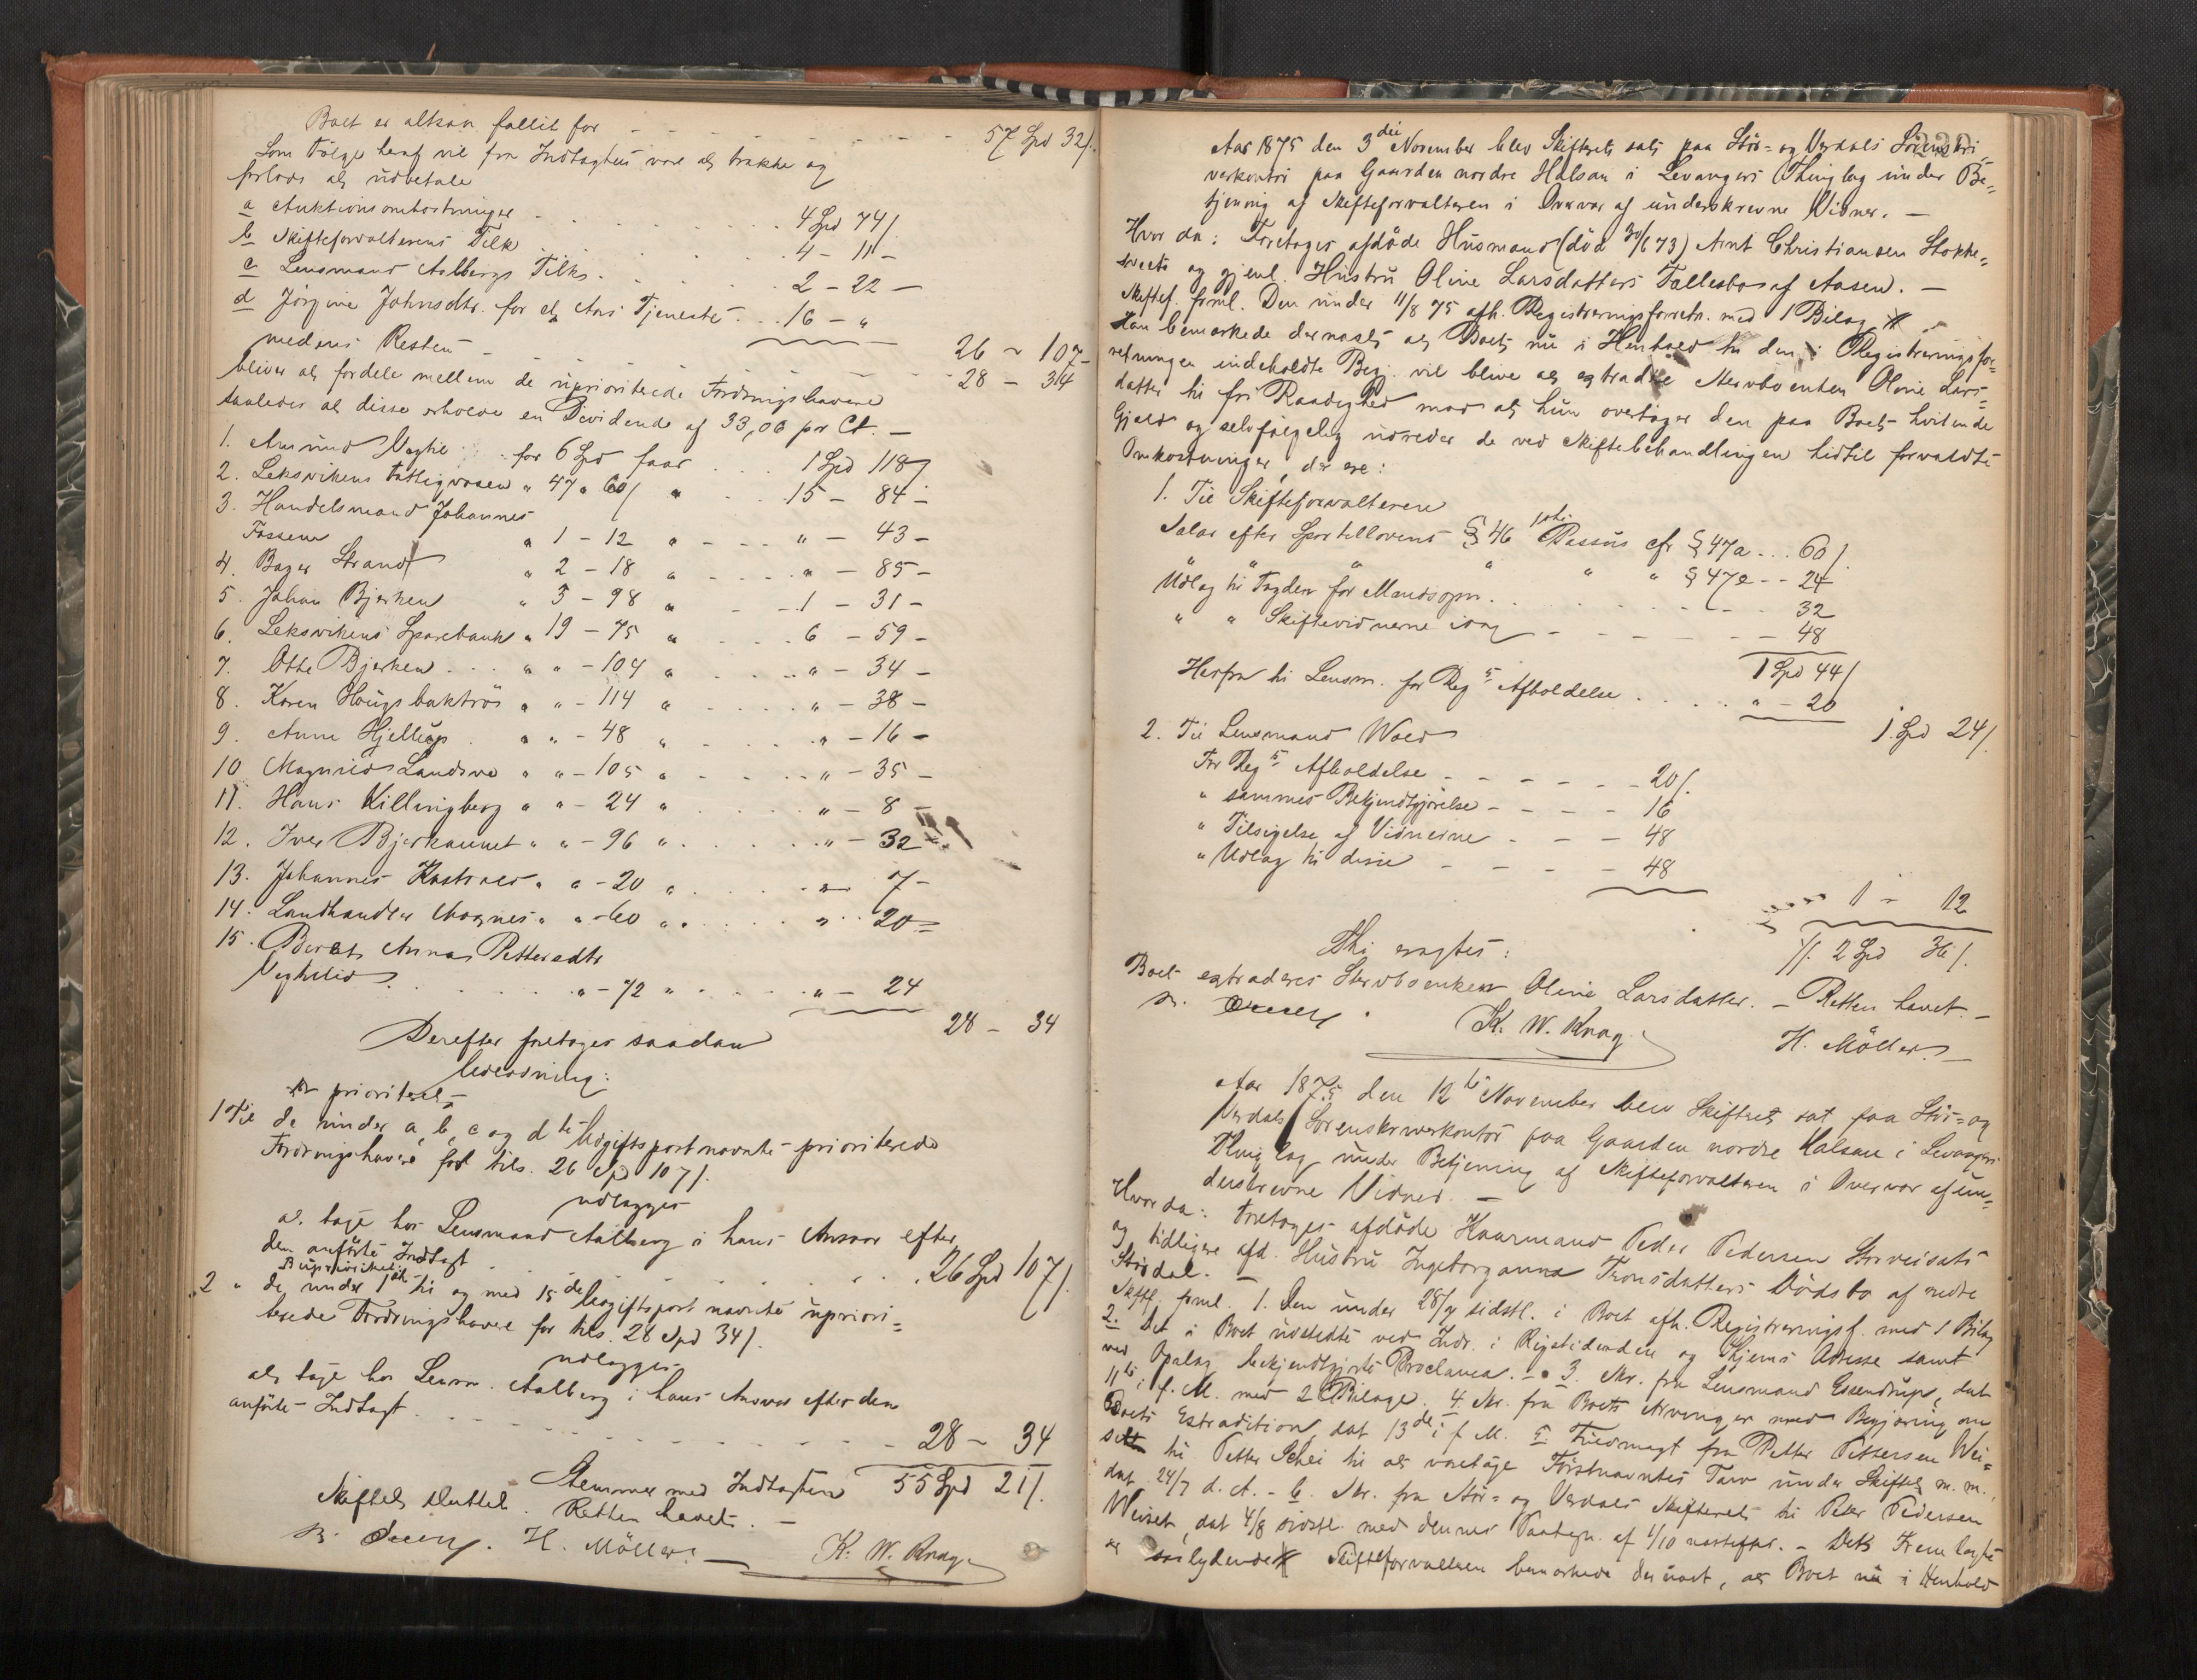 Boet er altsaa fallit for - - - - - - - 57 Spd 32/.
Som Følge heraf vil fra Indtægten være at trække og
forlods at udbetale
a Auktionsomkostninger - . . . . . 4 Spd 74/.
b Skifteforvalterens Tilk . . . . . . 4 - 11 -
c Lensmand Aalbergs Tilk. . . . . . 2 - 22 -
d Jørgine Johnsdtr. for et Aars Tjeneste . . . 16 - "
26 - 107 -
medens Resten - - - - - - - 28 - 34
bliver at fordele mellem de uprioriterede Fordringshavere
saaledes at disse erholde en Dividende af 33,06 pr Ct. -
1. Amund for 6 Spd faar . . . 1 Spd 118/
2. Leksvikens Fattigvæsen " 47 " 60/ " . . . 15 - 84 -
3. Handelsmand Johannes
Fossum " 1 - 12 " - - - " - 43 -
4. Bager Strand " 2 - 18 " - . . . " - 85 -
5. Johan Bjerken " 3 - 98 " - - - 1 - 31 -
6. Leksvikens Sparebank " 19 - 75 " . . . 6 - 59 -
7. Otto Bjerken . . . " " - 104 " . . . . " - 34 -
8. Karen Hougsbaktrøs " " - 114 " . . . . " - 38 -
9. Anne Hjellup . " " - 48 " . . . . " - 16 -
10 Magnild Landsvo " " - 105 " . . . . " - 35 -
11. Hans Killingberg " " - 24 " . . . . " - 8 -
12. Iver Bjerkaunet " " - 96 " . . . . " - 32 -
13. Johannes " " - 20 " . . . . " 7 -
14. Landhandler Magnes " " - 60 " . . . . " 20 -
15. Beret Anna Pettersdtr
. . . . . " - 72 " . . . . " - 24
28 - 34
Derefter foretoges saadan
Udlodning:
A prioriteret
1 Til de under a, b, c og d te Udgiftspost nævnte prioriterede
Fordringshavere for tils. 26 Spd 107/.
udlægges
at tage hos Lensmand Aalberg i hans Ansvar efter
den anførte Indtægt . . . . . . . 26 Spd 107/.
B uprioriteret
2 " de under 1ste til og med 15de Udgiftspost nævnte upriori=
terede Fordringshavere for tils. 28 Spd 34/.
udlægges
at tage hos Lensm. Aalberg i hans Ansvar efter den
anførte Indtægt . . . . . . . 28 - 34
Stemmer med Indtægten 55 Spd 21/.
Skiftet sluttet. Retten hævet. -
H. Møller. - K. W. Knag
Aar 1875 den 3die November blev Skifteret sat paa Stør= og Værdals Sorenskri=
verkontor paa Gaarden nordre Halsan i Levangers Thinglag under Be=
tjening af Skifteforvalteren i Overvær af underskrevne Vidner. -
Hvor da: Foretoges afdøde Husmand (død 30/6 73) Arnt Christiansen Stokke=
og gjenl. Hustru Oline Larsdatters Fællesbo af Aasen. -
Skiftef. freml. Den under 11/8 75 afh. Registreringsforretn. med 1 Bilag
Han bemærkede dernæst at Boet nu i Henhold til den i Registreringsfor=
retningen indeholdte Begj. vil blive at extradere Stervboenken Oline Lars=
datter til fri Raadighed mod at hun overtager den paa Boet hvilende
Gjæld og selvfølgelig udreder de ved Skiftebehandlingen hidtil forvaldte
Omkostninger, der ere:
1. Til Skifteforvalteren
Salær efter Sportellovens § 46 1ste Passus cfr § 47a . . . 60/.
" " " " " § 47e - - 24
Udlag til Tagden for Mandsopn. . . . . . . 32
" " Skiftevidnerne idag - - - - - - - 48
1 Spd 44/
Herfra til Lensm. for Reg s Afholdelse . . . . " - 20
1 Spd 24/.
2. Til Lensmand Woed
For Reg s Afholdelse - - - - - - 20/.
" sammes Bekjendtgjørelse - - - - 16
" Tilsigelse af Vidnerne - - - 48
" Udlag til disse - - - - 48
1 - 12
2 Spd 36/.
Thi eragtes:
Boet extraderes Stervboenken Oline Larsdatter. - Retten hævet. -
K. W. Knag. H. Møller. -
Aar 1875 den 12te November blev Skifteret sat paa Stør= og
Værdals Sorenskriverkontor paa Gaarden nordre Halsan i Levangers
Thinglag under Betjening af Skifteforvalteren i Overvær af un=
derskrevne Vidner. -
Hvor da: Foretoges afdøde Kaarmand Peder Pedersen Storveisæts
og tidligere afd. Hustru Ingeborganna Tronsdatters Dødsbo af nedre
Størdal. -
Skftf. freml. 1. Den under 28/7 sidstl. i Boet afh. Registreringsf. med 1 Bilag
2. Det i Boet udstedte ved Indr. i Rigstidenden og Skjems Adresse samt
ved Opslag bekjendtgjorte Proclama. - 3. Skr. fra Lensmand Essendrup, dat
11te i f. M. med 2 Bilage. 4. Skr. fra Boets Arvinger med Begjæring om
Boets Extradition dat 13de i f M. 5. Fuldmagt fra Petter Pettersen Wei=
til Petter Schei til at varetage Førstnævntes Tarv under Skiftet m. m.,
dat 24/7 d. A. - 6. Skr. fra Stør= og Værdals Skifteret til Peter Pedersen
Weiset, dat 4/8 sidstl. med dennes Paategn. af 1/10 næstefter. - Det Fremlagte
er saalydende Skifteforvalteren bemærkede dernæst, at Boet nu i Henhold